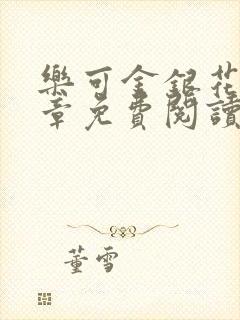 樂可金銀花
章免費閱讀
董雪